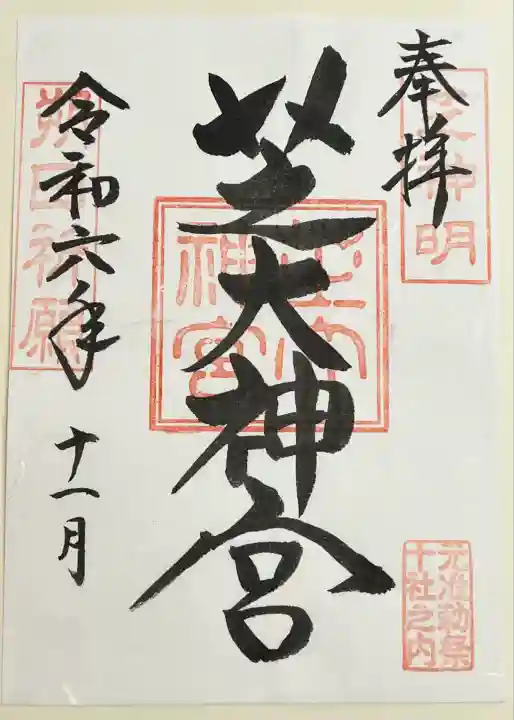 奉拝
芝神明
芝大神宮
芝大神宮
元准勅祭
十社之内
令和六年
十一月
朔日祈願